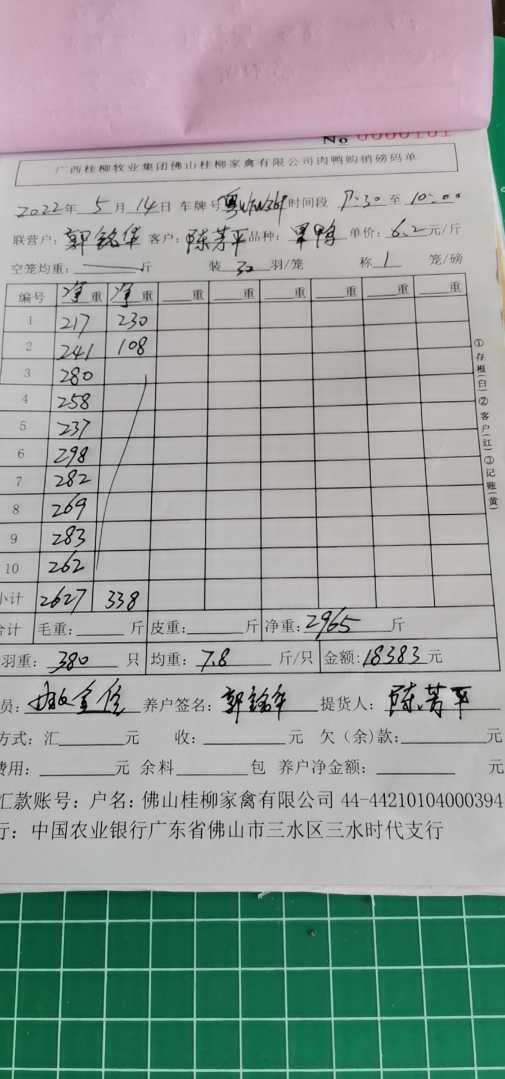 No 0000101
广西桂柳牧业集团佛山桂柳家禽有限公司肉鸭购销磅码单
2022年 5月 14日 车牌号 时间段 7:30 至 10:00
联营户: 郭铭华 客户: 陈芳平 品种: 鸭 单价: 6.2元/斤
空笼均重: 斤 装 30 羽/笼 称 1 笼/磅
编号 净重 净重 重 重 重 重 重 重
1 217 230
2 241 108
3 280
4 258
5 237
6 298
7 282
8 269
9 283
10 262
小计 2627 338
合计 毛重: 斤 皮重: 斤 净重: 2965 斤
羽重: 380 只 均重: 7.8 斤/只 金额: 18383元
员: 养户签名: 郭铭华 提货人: 陈芳平
方式: 汇 元 收: 元 欠(余)款: 元
费用: 元 余料 包 养户净金额: 元
汇款账号: 户名: 佛山桂柳家禽有限公司 44-44210104000394
行: 中国农业银行广东省佛山市三水区三水时代支行
①存根(白)②客户(红)③记账(黄)